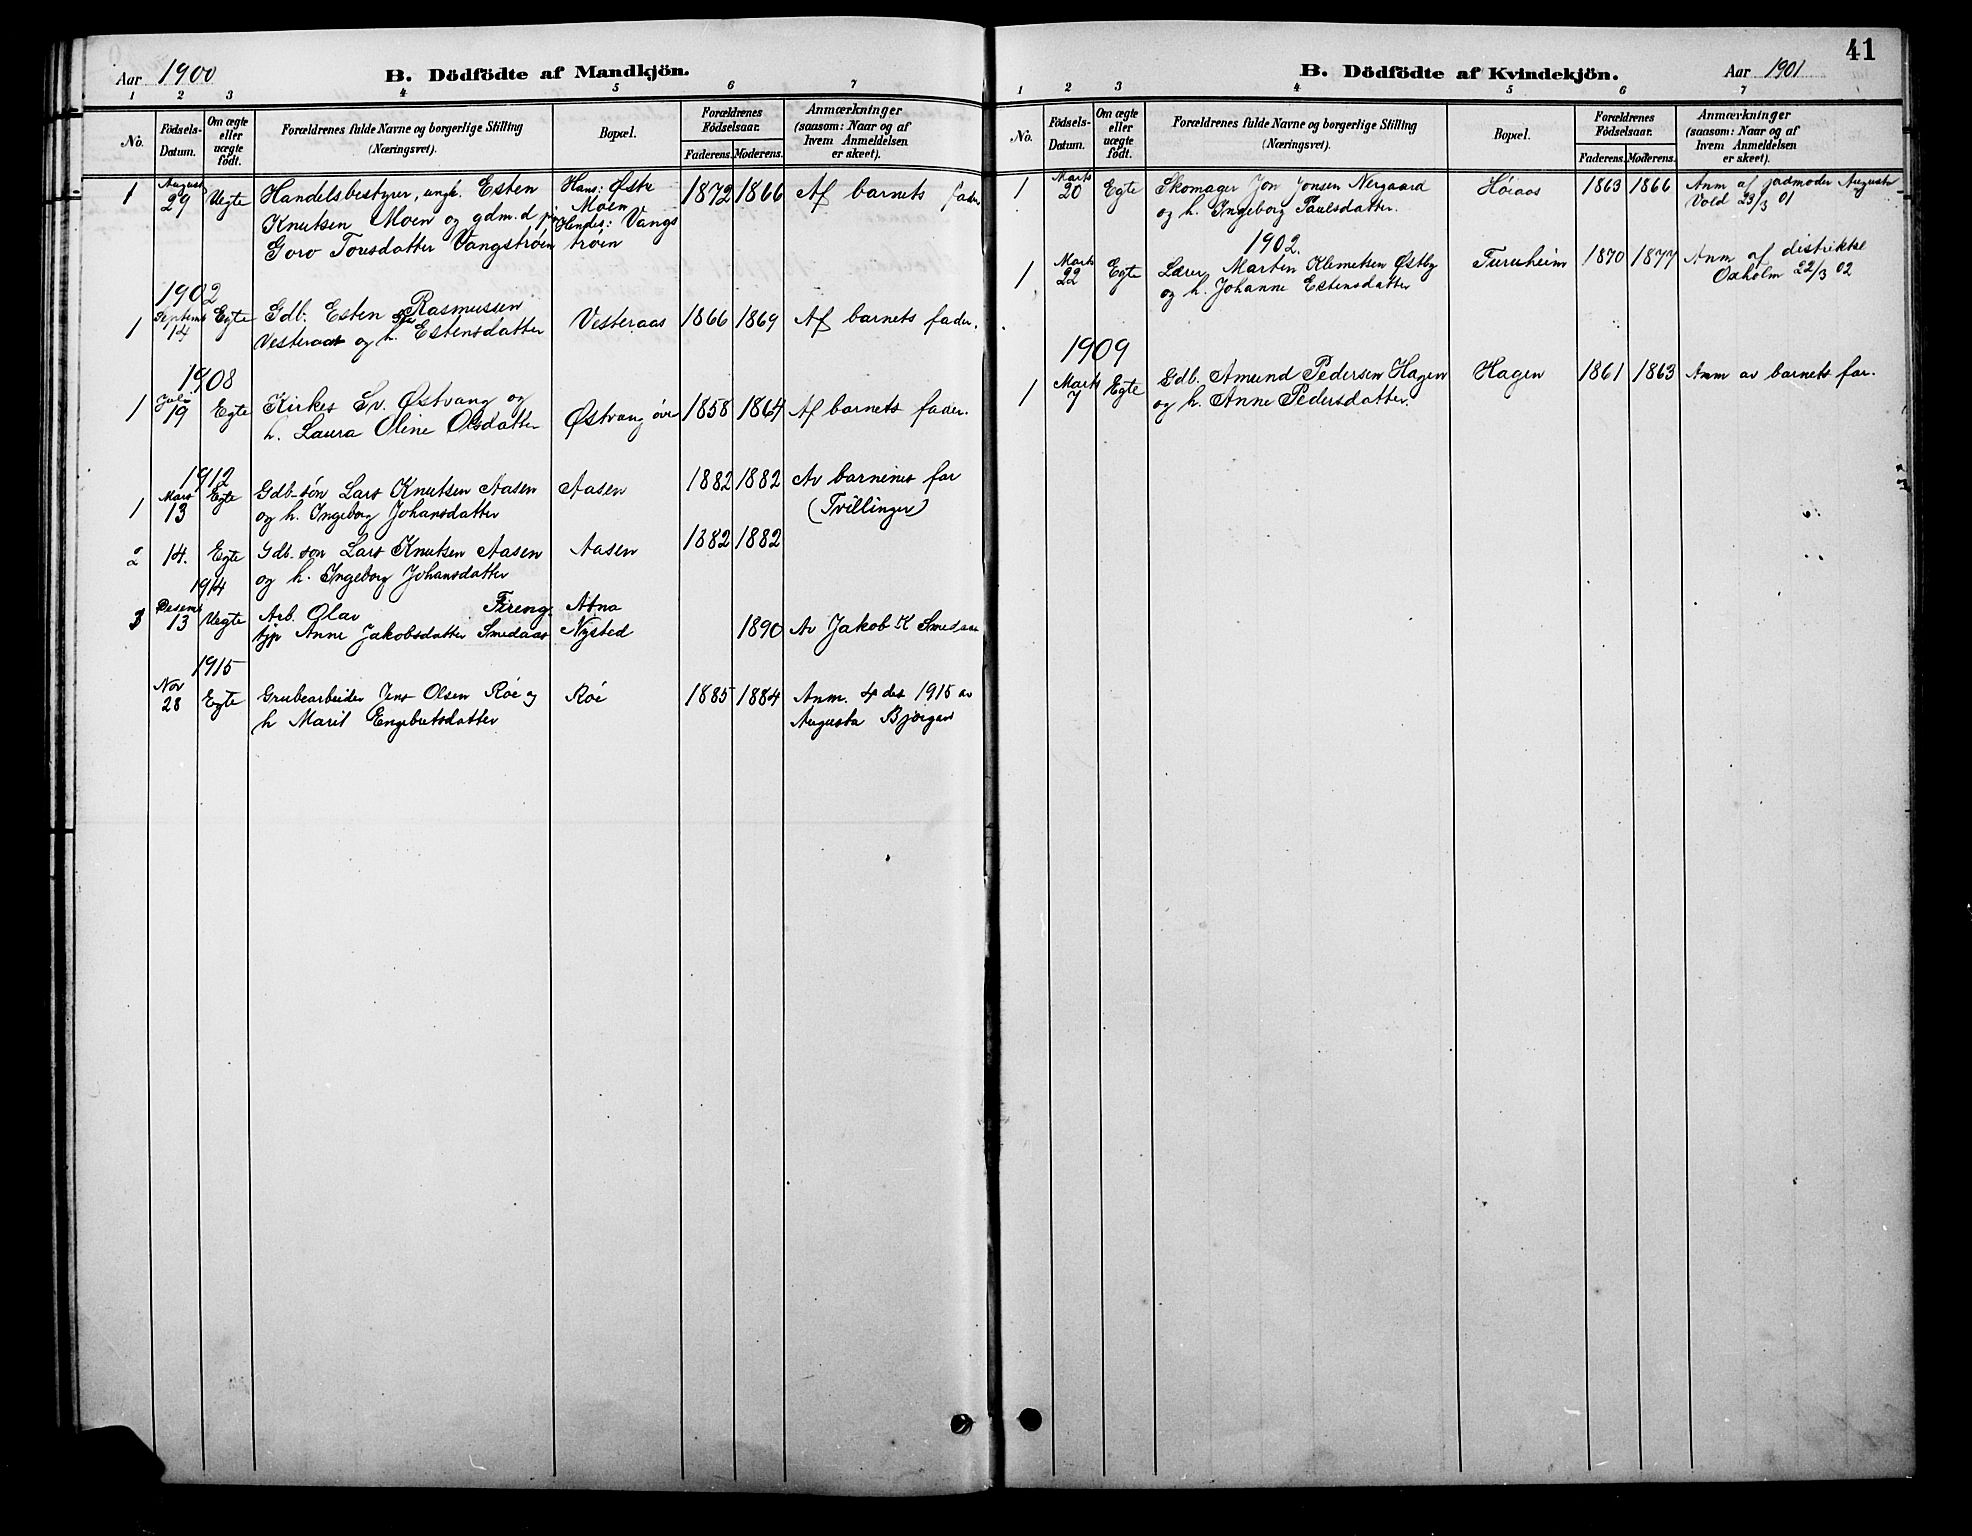 Aar 1900
B. Dödfödte af Mandkjön.
1 2 3 4 5 6 7
No.
Födsels-Datum.
Om ægte eller uægte födt.
Forældrenes fulde Navne og borgerlige Stilling
(Næringsvei).
Bopæl.
Forældrenes Födselsaar.
Faderens. Moderens.
Anmærkninger
(saasom: Naar og af
hvem Anmeldelsen
er skeet).
1 August 29 Uegte Handelsbestyrer, ungk. Esten Hans: Østre 1872 1866 Af barnets fader.
Knutsen Moen og gdm.d. Moen
Goro Toresdatter Vangstrøen Hendes: Vangs
trøen
1902
1 Septemb 14 Egte Gdb. Esten Rasmussen Vesteraas 1866 1869 Af barnets fader.
Vesteraas og h. Estensdatter
1908
1 Juli 19 Egte Kirkes. Østvang og Østvang øvre 1858 1864 Af barnets fader.
h. Laura Oline Olsdatter
1912
1 Mars 13 Egte Gdb-søn Lars Knutsen Aasen Aasen 1882 1882 Av barnenes far
og h. Ingeborg Johansdatter (Tvillinger)
2 14. Egte Gdb. søn Lars Knutsen Aasen Aasen 1882 1882
og h. Ingeborg Johansdatter
1914
3 Desemb 13 Uegte Arb. Olav Atna
tjp Anne Jakobsdatter Smedaas Nysted 1890 Av Jakob K Smedaas
1915
Nov 28 Egte Grubearbeider Jens Olsen Røe og Røe 1885 1884 Anm. 4 des 1915 av
h Marit Engebretsdatter Augusta Bjørgan
41
B. Dödfödte af Kvindekjön.
Aar 1901
1 2 3 4 5 6 7
No.
Födsels-Datum.
Om ægte eller uægte födt.
Forældrenes fulde Navne og borgerlige Stilling
(Næringsvei).
Bopæl.
Forældrenes Födselsaar.
Faderens. Moderens.
Anmærkninger
(saasom: Naar og af
hvem Anmeldelsen
er skeet).
1 Marts 20 Egte Skomager Jon Jonsen Nergaard Høiaas 1863 1866 Anm af jordmoder Augusta
og h. Ingeborg Paulsdatter. Vold 23/3 01
1902.
1 Marts 22 Egte Lærer Martin Klemetsen Østby Furuheim 1870 1877 Anm af distriktsl
og h. Johanne Estensdatter Oxholm 22/3 02
1909
1 Marts 7 Egte Gdb. Amund Pedersen Hagen Hagen 1861 1863 Anm av barnets far.
og h. Anne Pedersdatter.